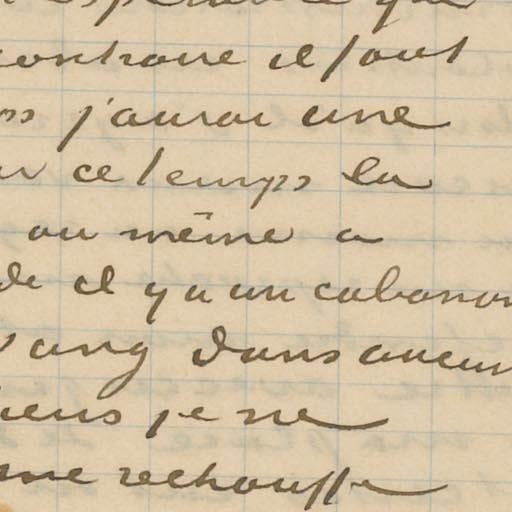 contraire il faut
j'aurai une
ce temps la
ou même a
de il y a un cabanon
sang dans aucun
je ne
me rechauffe